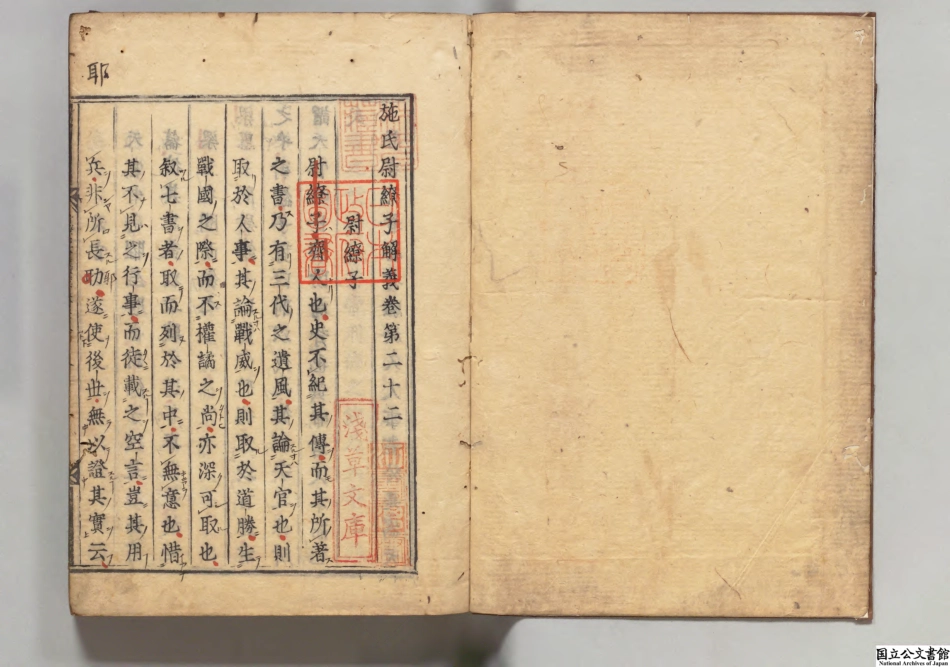 施氏尉繚子解義卷第二十二
尉繚子
尉繚子齊人也史不紀其傳而其所著
之書乃有三代之遺風其論天官也則
取於人事其論戰威也則取於道勝生
戰國之際而不權譎之尚亦深可取也
叙七書者取而列於其中不無意也惜
其不見之行事而徒載之空言豈其用
兵非所長功遂使後世無以證其實云
耶
淺草文庫
国立公文書館
National Archives of Japan